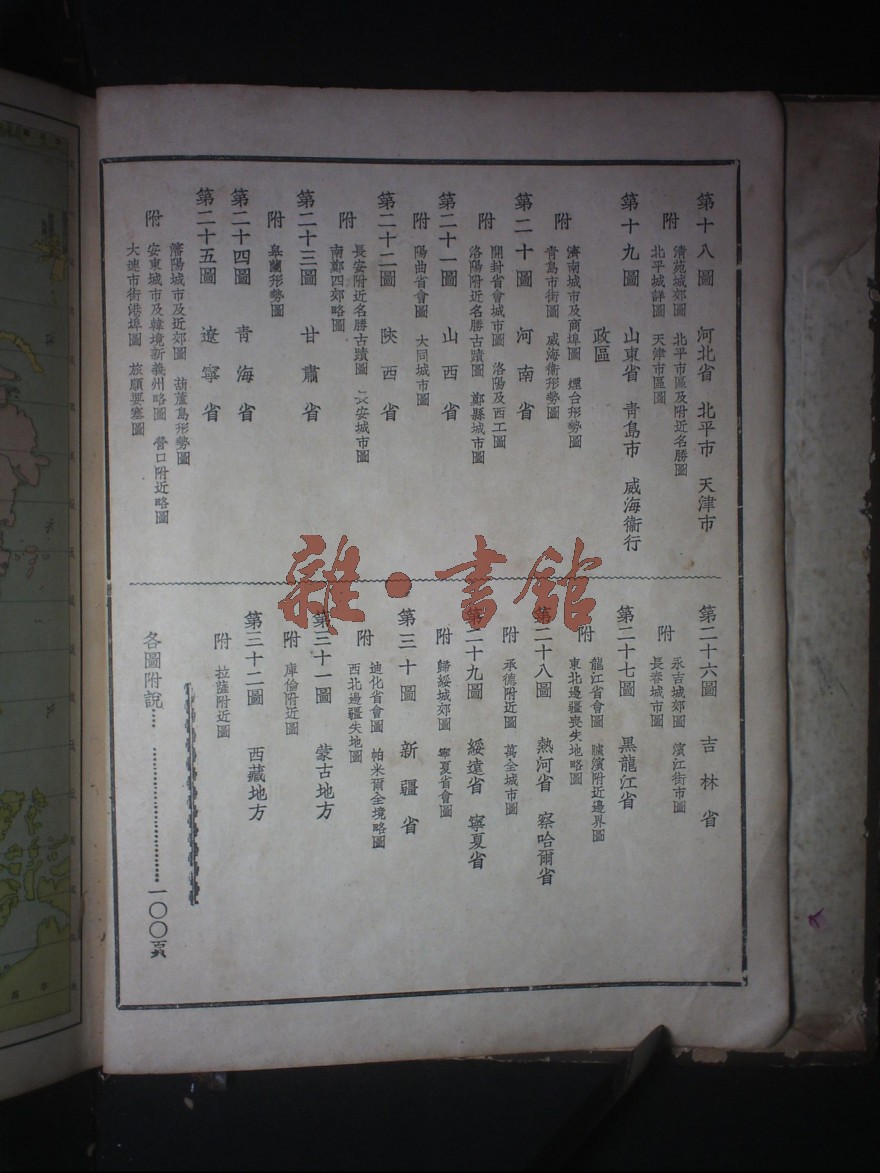 第十八圖 河北省 北平市 天津市
附
清苑城郊圖 北平市區及附近名勝圖
北平城詳圖 天津市區圖
第十九圖 山東省 青島市 威海衞行
政區
附
濟南城市及商埠圖 煙台形勢圖
青島市街圖 威海衞形勢圖
第二十圖 河南省
附
開封省會城市圖 洛陽及西工圖
洛陽附近名勝古蹟圖 鄭縣城市圖
第二十一圖 山西省
附
陽曲省會圖 大同城市圖
第二十二圖 陝西省
附
長安附近名勝古蹟圖 安城市圖
南鄭四郊略圖
第二十三圖 甘肅省
附
皋蘭形勢圖
第二十四圖 青海省
第二十五圖 遼寧省
附
瀋陽城市及近郊圖 葫蘆島形勢圖
安東城市及韓境新義州略圖 營口附近略圖
大連市街港埠圖 旅順要塞圖
第二十六圖 吉林省
附
永吉城郊圖 濱江街市圖
長春城市圖
第二十七圖 黑龍江省
附
龍江省會圖 臚濱附近邊界圖
東北邊疆喪失地略圖
第二十八圖 熱河省 察哈爾省
附
承德附近圖 萬全城市圖
第二十九圖 綏遠省 寧夏省
附
歸綏城郊圖 寧夏省會圖
第三十圖 新疆省
附
迪化省會圖 帕米爾全境略圖
西北邊疆失地圖
第三十一圖 蒙古地方
附
庫倫附近圖
第三十二圖 西藏地方
附
拉薩附近圖
各圖附說⋯⋯⋯⋯⋯⋯⋯⋯一〇〇頁
雜·書館